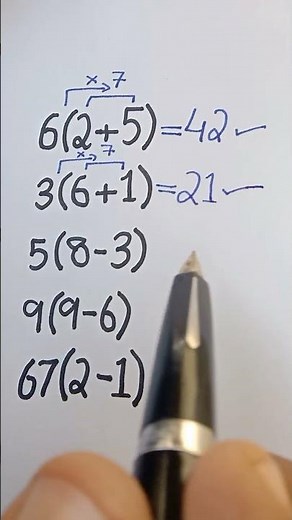 × 7
6(2+5)=42✓
× 7
3(6+1)=21✓
5(8-3)
9(9-6)
67(2-1)